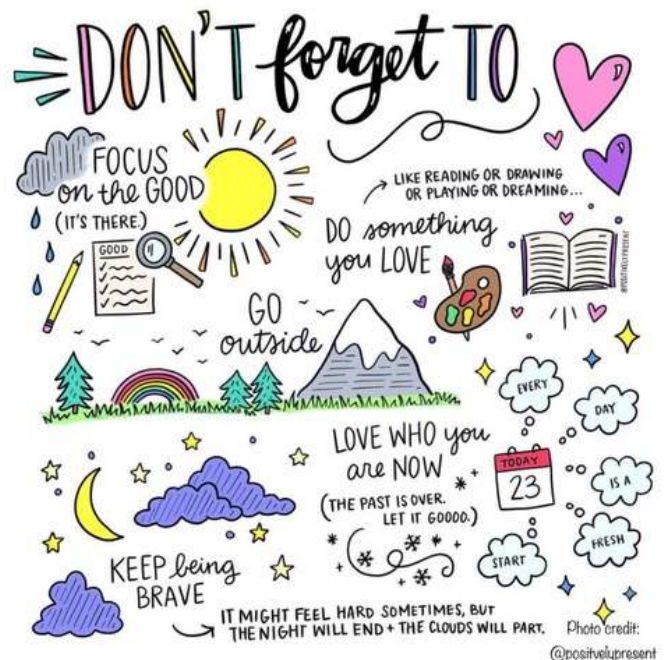 DON'T forget TO
FOCUS
on the GOOD
(IT'S THERE.)
GOOD
LIKE READING OR DRAWING
OR PLAYING OR DREAMING...
DO something
you LOVE
@POSITIVELYPRESENT
GO
outside
EVERY
DAY
IS A
FRESH
START
TODAY
23
LOVE WHO you
are NOW
(THE PAST IS OVER.
LET IT GOOOO.)
KEEP being
BRAVE
IT MIGHT FEEL HARD SOMETIMES, BUT
THE NIGHT WILL END + THE CLOUDS WILL PART.
Photo credit:
@positvelypresent